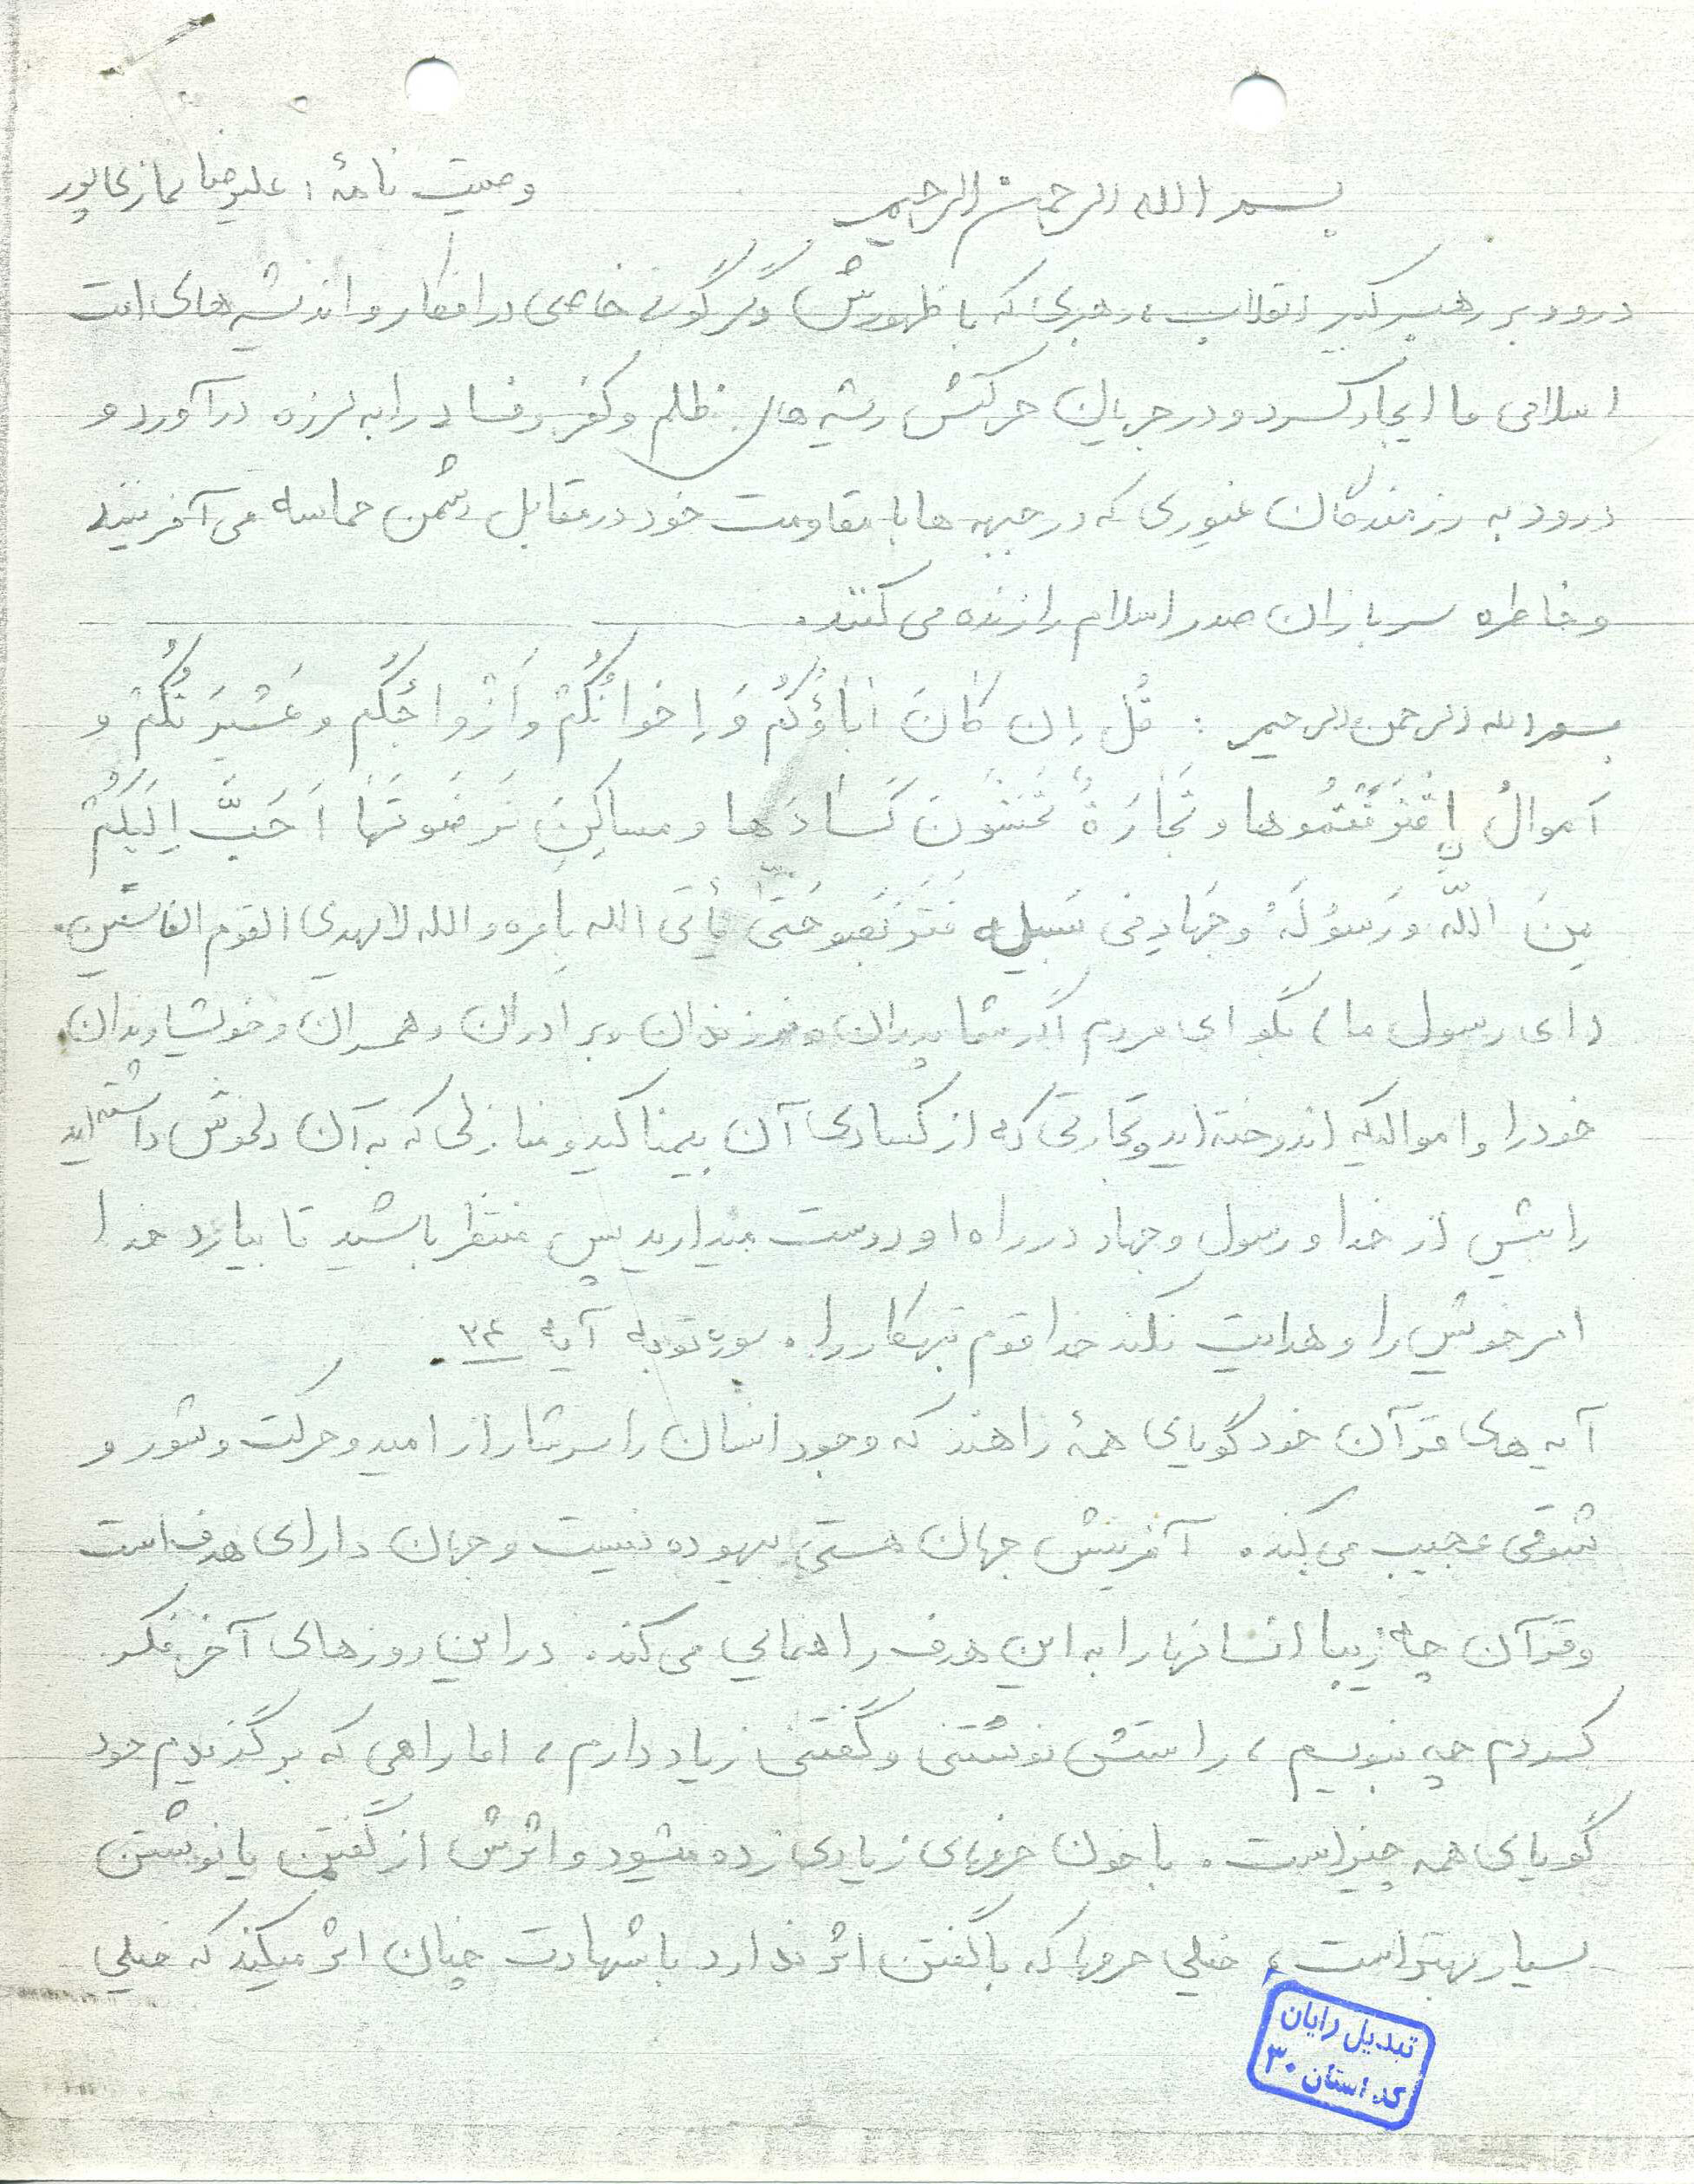 بسم الله الرحمن الرحیم
وصیت نامهٔ : علیرضا نمازی پور
درود بر رهبر کبیر انقلاب ، رهبری که با ظهورش دگرگونی خاصی در افکار و اندیشه های امت
اسلامی ما ایجاد کرد و در جریان حرکتش ریشه های ظلم و کفر و فساد را به لرزه درآورد و
درود به رزمندگان غیوری که در جبهه ها با مقاومت خود در مقابل دشمن حماسه می آفرینند
و خاطره سربازان صدر اسلام را زنده می کنند.
بسم الله الرحمن الرحیم : قُل اِن کانَ اٰباؤُکُم وَ اِخوانُکُمْ وَ اَزْواجُکُم و عَشْیرَتُکُمْ و
اَموالُ اِقْتَرَفْتُمُوها و تِجارَةُ تَخشَونَ کَسادَها و مساکِنِ تَرضَوتَهٰا اَحَبَّ اِلَیکُمْ
مِنَ اللّه و رَسوُلَهُ و جَهادِ فی سَبیلِه فَتَرَبَصو حَتیّٰ یأتی الله بِامره و الله لا یهدی القوم الفاسقین.
(ای رسول ما) بگو ای مردم اگر شما پدران و فرزندان و برادران و همسران و خویشاوندان
خود را و اموالیکه اندوخته اید و تجارتی که از کسادی آن بیمناکید و منازلی که به آن دلخوش داشته اید
را بیش از خدا و رسول و جهاد در راه او دوست میدارید پس منتظر باشید تا بیارد خدا
امر خویش را و هدایت نکند خدا قوم تبهکار را. سوره توبه آیه ۲۴.
آیه های قرآن خود گویای همهٔ راهند که وجود انسان را سرشار از امید و حرکت و شور و
شوقی عجیب می کند. آفرینش جهان هستی بیهوده نیست و جهان دارای هدف است
و قرآن چه زیبا انسانها را به این هدف راهنمایی می کند. در این روزهای آخر فکر
کردم چه بنویسم ، راستش نوشتنی و گفتنی زیاد دارم ، اما راهی که برگزیدم خود
گویای همه چیز است. با خون حرفهای زیادی زده میشود و اثرش از گفتن یا نوشتن
بسیار بهتر است ، خیلی حرفها که با گفتن اثر ندارد با شهادت چنان اثر میکند که خیلی
تبدیل رایان
کد استان ۳۰